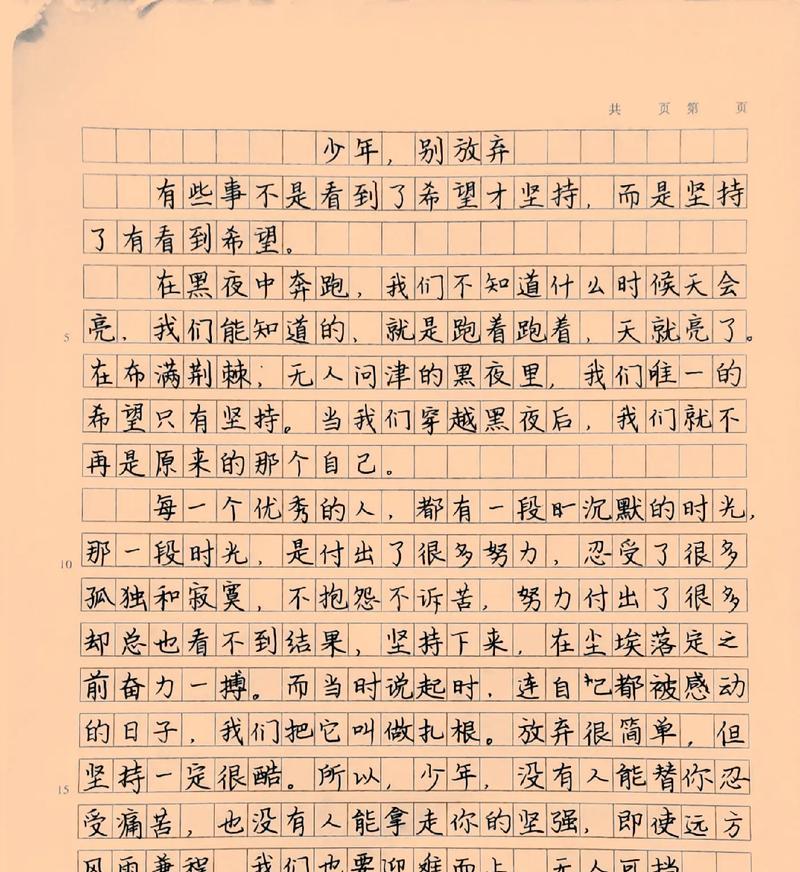 共 页 第 页
少年，别放弃
有些事不是看到了希望才坚持，而是坚持
了有看到希望。
在黑夜中奔跑，我们不知道什么时候天会
5 亮，我们能知道的，就是跑着跑着，天就亮了。
在布满荆棘，无人问津的黑夜里，我们唯一的
希望只有坚持。当我们穿越黑夜后，我们就不
再是原来的那个自己。
每一个优秀的人，都有一段沉默的时光，
10 那一段时光，是付出了很多努力，忍受了很多
孤独和寂寞，不抱怨不诉苦，努力付出了很多
却总也看不到结果，坚持下来，在尘埃落定之
前奋力一搏。而当时说起时，连自己都被感动
的日子，我们把它叫做扎根。放弃很简单，但
15 坚持一定很酷。所以，少年，没有人能替你忍
受痛苦，也没有人能拿走你的坚强，即使远方
风雨兼程，我们也要迎难而上，无人可挡